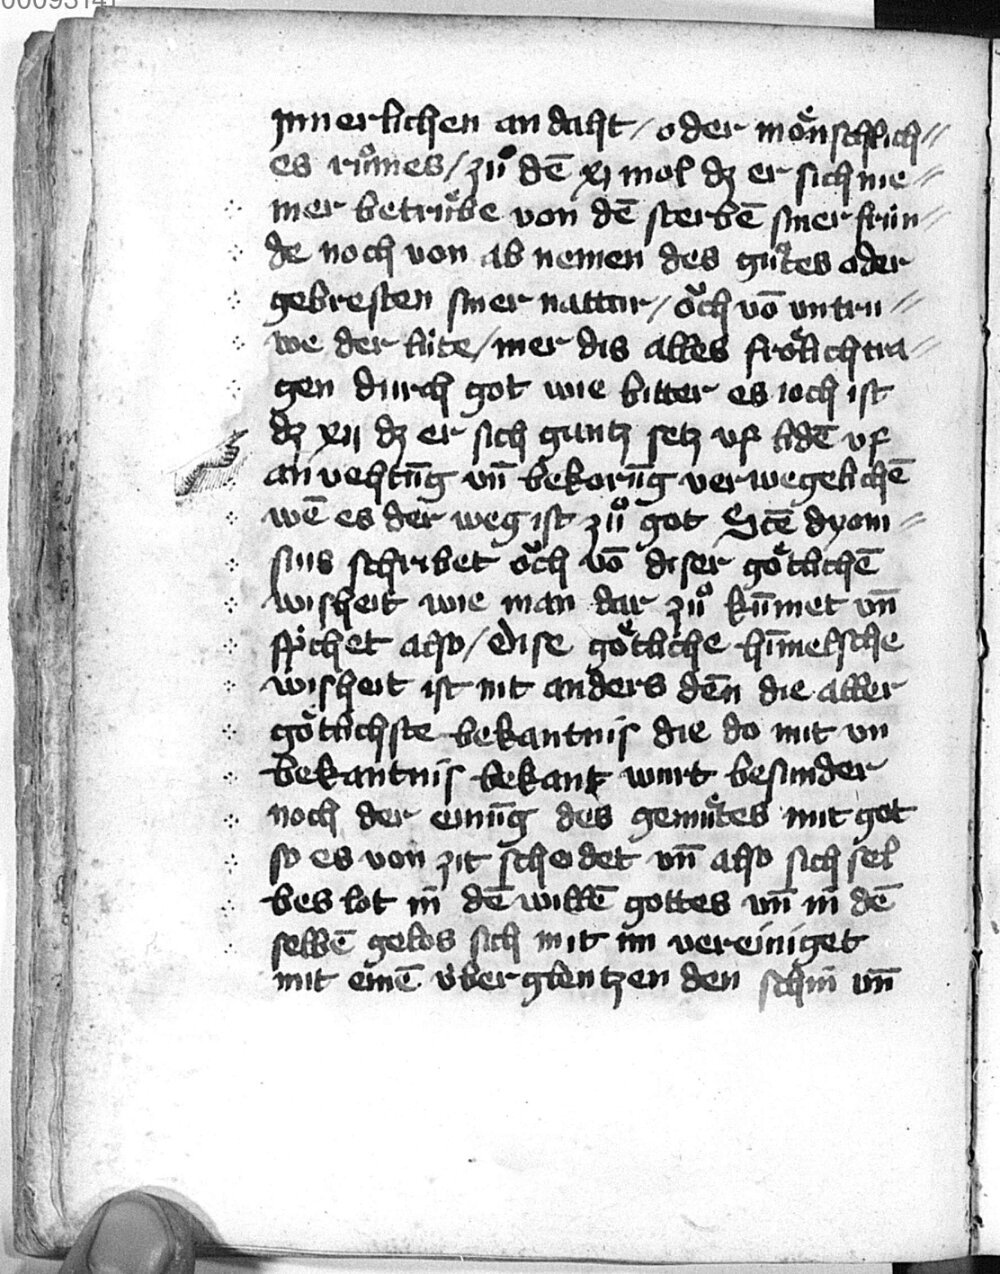 Innerlichen andaht / oder moͤnschlich⸗
es ruͦmes / zuͦ dē xj mol dz er sich nie⸗
mer betruͤbe von dē sterbē siner frún⸗
de noch von ab nemen des guͦtes oder
gebresten siner nattur / oͮch vō vntrú⸗
we der lúte / mer dis alles froͤlich tra⸗
gen durch got wie bitter es ioch ist
dz xij dz er sich gantz setz vf lidē vf
anvechtūg vn̄ bekorūg verwegelichē
wē es der weg ist zuͦ got Sctē dyoni⸗
sius schribet oͮch vō diser goͤtlichē
wisheit wie man dar zuͦ kūmet vn̄
sp̄ichet also / Dise goͤtliche hīmelsche
wisheit ist nit anders dēn die aller
goͤtlichste bekantnis die do mit vn
bekantnis bekant wurt besunder
noch der einūg des gemuͤtes mit got
so es von zit scheidet vn̄ also sich sel
bes lot in̄ dē willē gottes vn̄ in̄ dē
selbē gelos sich mit im vereiniget
mit einē úberglentzenden schin̄ vn̄